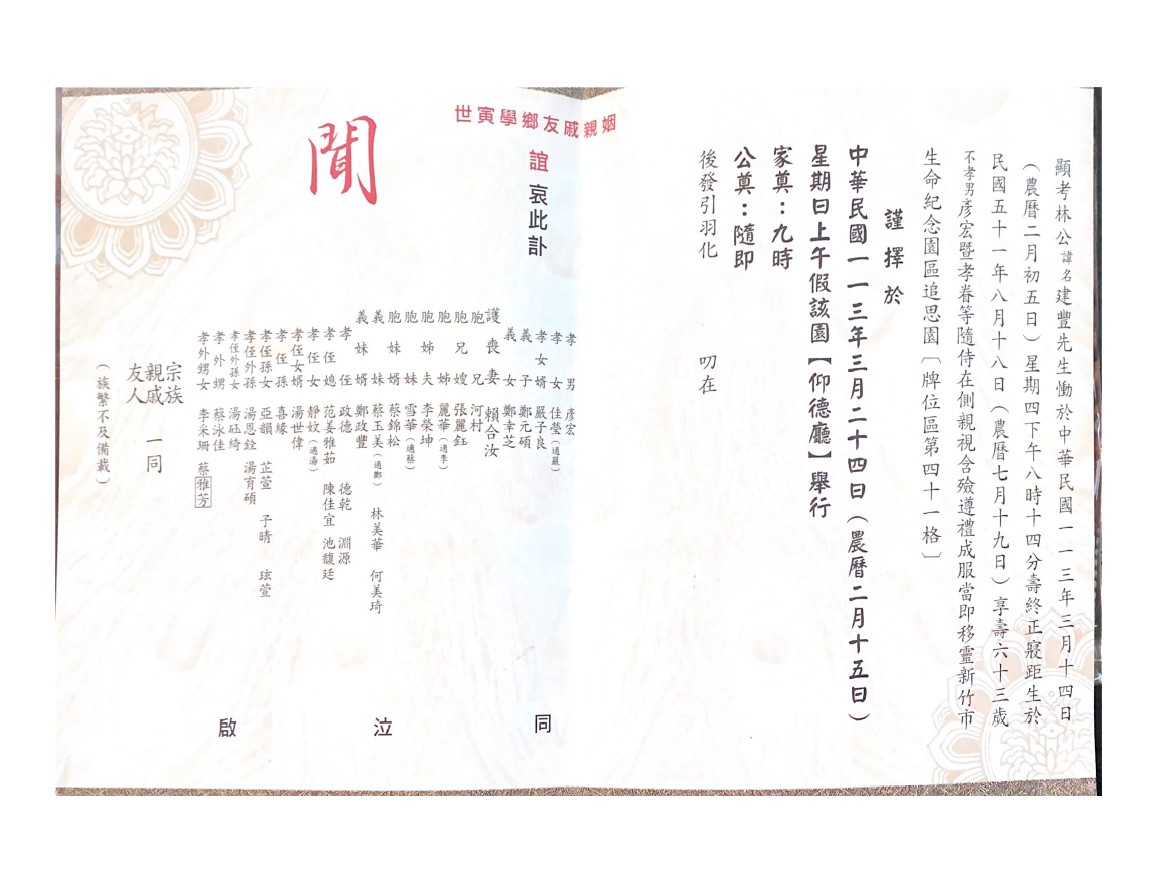 顯考林公諱名建豐先生慟於中華民國一一三年三月十四日
（農曆二月初五日）星期四下午八時十四分壽終正寢距生於
民國五十一年八月十八日（農曆七月十九日）享壽六十三歲
不孝男彥宏暨孝眷等隨侍在側親視含殮遵禮成服當即移靈新竹市
生命紀念園區追思園〔牌位區第四十一格〕
謹擇於
中華民國一一三年三月二十四日（農曆二月十五日）
星期日上午假該園【仰德廳】舉行
家奠：九時
公奠：隨即
後發引羽化 叨在
姻親戚友鄉學寅世
誼哀此訃
聞
孝男 彥宏
孝女 佳瑩（適嚴）
孝女婿 嚴子良
義子 鄭元碩
義女 鄭幸芝
護喪妻 賴合汝
胞兄 河村
胞兄嫂 張麗鈺
胞姊 麗華（適李）
胞姊夫 李榮坤
胞妹 雪華（適蔡）
胞妹婿 蔡錦松
義妹 蔡玉美（適鄭） 林美華 何美琦
義妹婿 鄭政豐
孝侄 政德 德乾 淵源
孝侄媳 范姜雅茹 陳佳宜 池馥廷
孝侄女 靜妏（適湯）
孝侄女婿 湯世偉
孝侄孫 喜緣
孝侄孫女 亞韻 芷萱 子晴 玹萱
孝侄外孫 湯恩銓 湯育碩
孝侄外孫女 湯砡綺
孝外甥 蔡泳佳
孝外甥女 李采珊 蔡雅芳
宗族
親戚 一同
友人
（族繁不及備載）
同
泣
啟